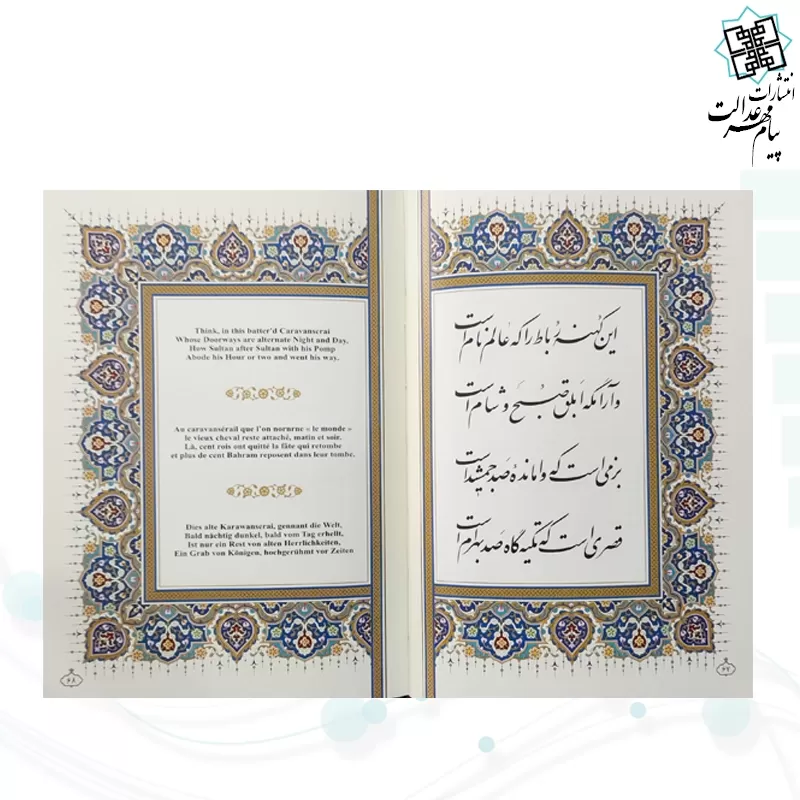 انتشارات
پیام مهر عدالت
این کهنه رُباط را که عالم نام است
وآرامگه ابلق صُبح و شام است
بزمی است که وامانده صد جمشید است
قصری است که تکیه گاه صد بهرام است
۶۷
Think, in this batter'd Caravanserai
Whose Doorways are alternate Night and Day,
How Sultan after Sultan with his Pomp
Abode his Hour or two and went his way.
Au caravansérail que l'on nornrne « le monde »
le vieux cheval reste attaché, matin et soir.
Là, cent rois ont quitté la fâte qui retombe
et plus de cent Bahram reposent dans leur tombe.
Dies alte Karawanserai, gennant die Welt,
Bald nächtig dunkel, bald vom Tag erhellt,
Ist nur ein Rest von alten Herrlichkeiten,
Ein Grab von Königen, hochgerühmt vor Zeiten
۶۸